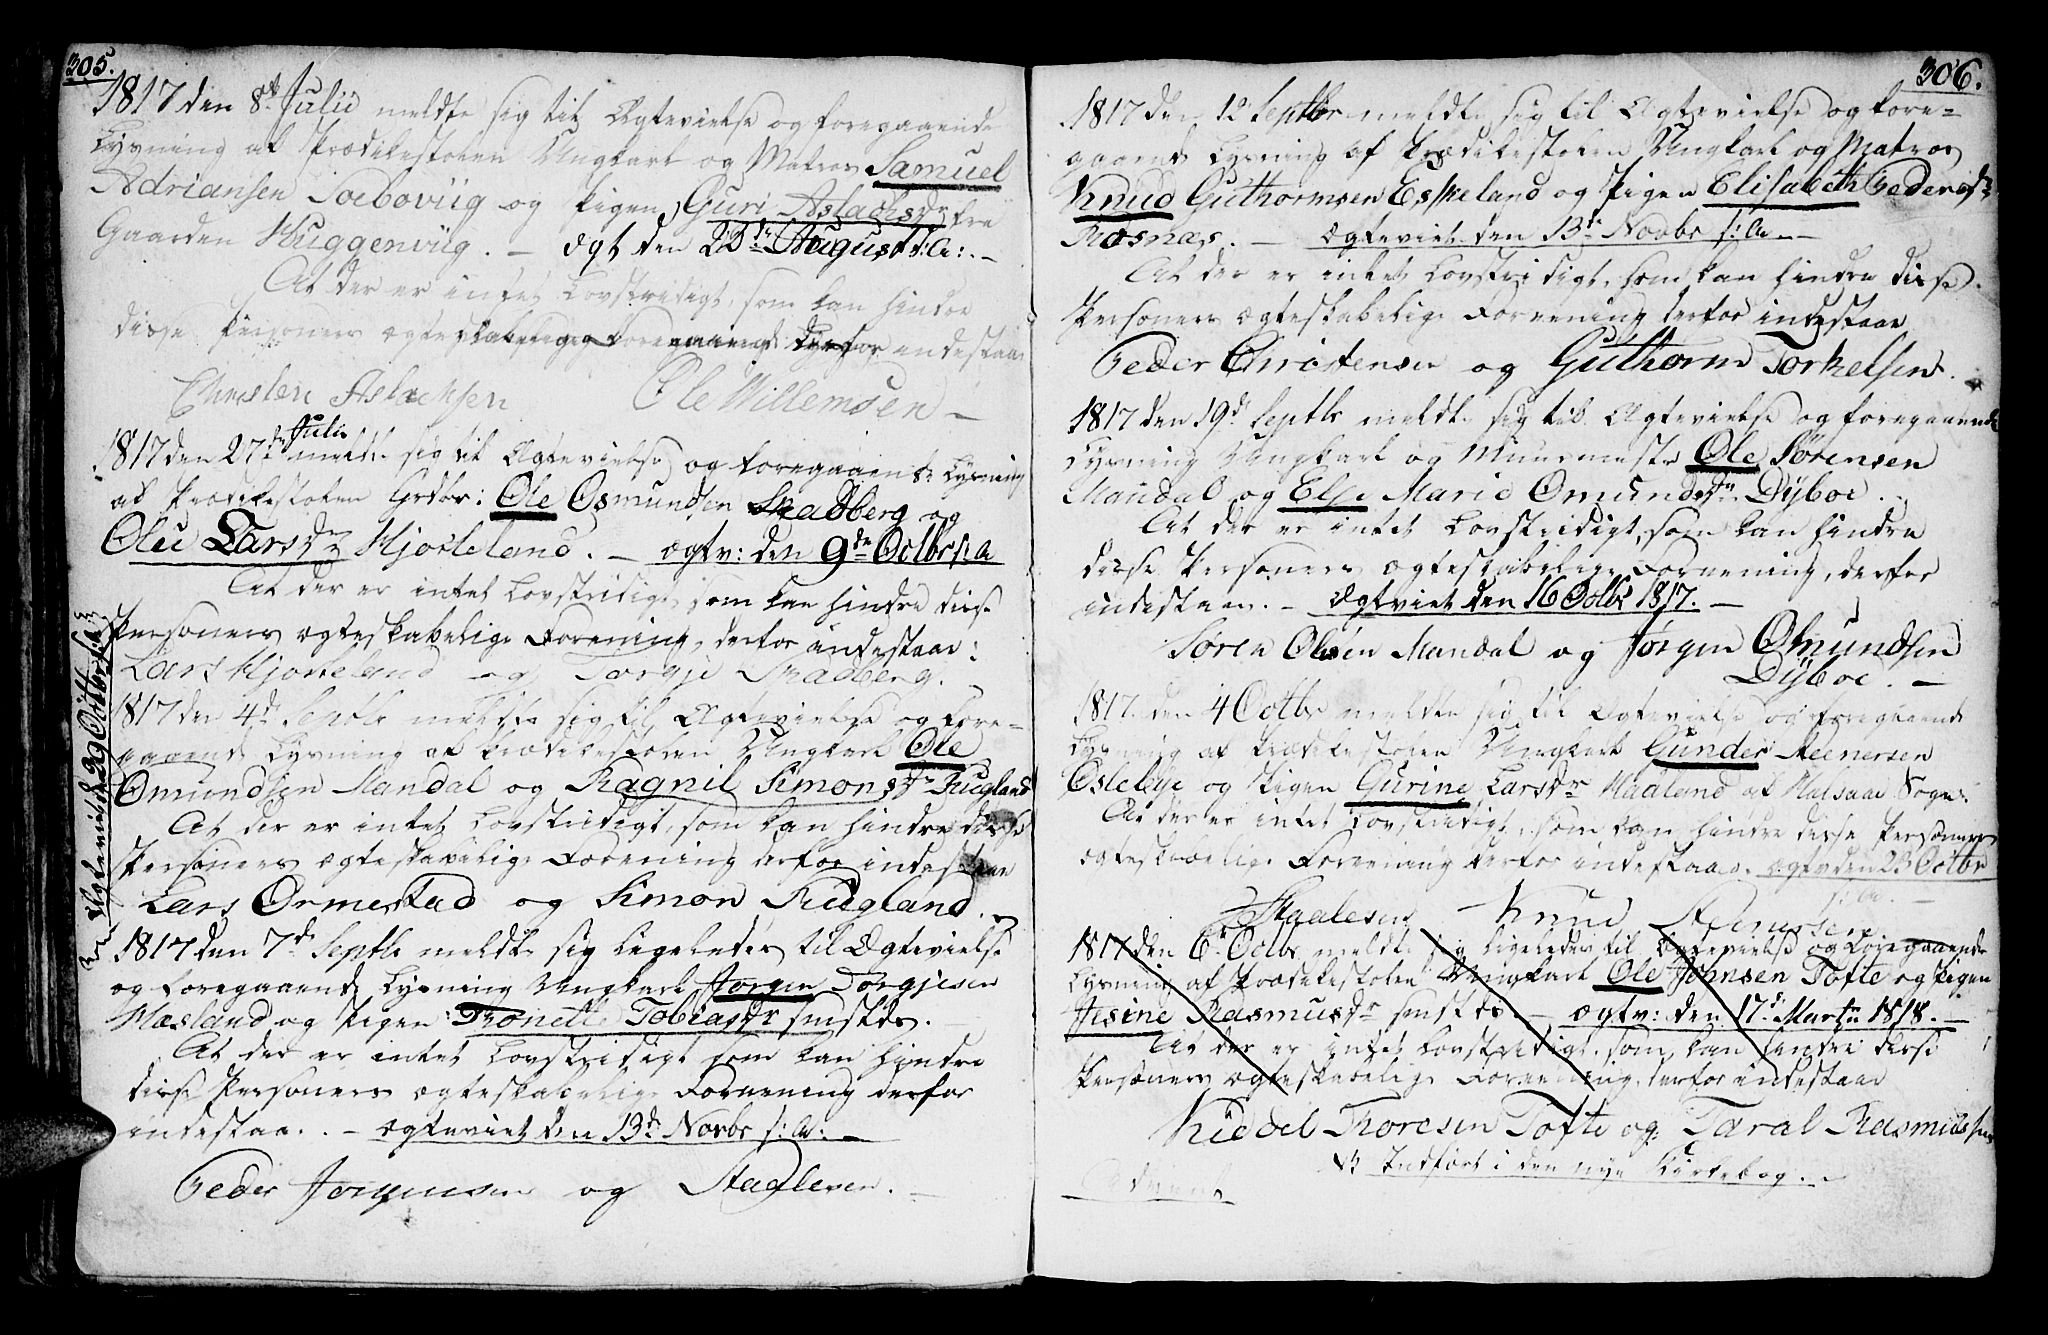 305.
1817 den 8de Julii meldte sig til Ægtevielse og foregaaende
Lysning af Prædikestolen Ungkarl og Matros Samuel
Adriansen Soebovüg og Pigen Guri Aslachsdr fra
Gaarden Huggenvüg. - ægt den 28de August s: A: -
At der er intet Lovstridigt, som kan hindre
disse Personers ægteskabelige Foreening derfor indestaar
Christen Aslachsen Ole Willemsen -
1817 den 27de Julii meldte sig til Ægtevielse og foregaaende Lysning
af Prædikestolen Grdbr: Ole Osmundsen Skadberg og
Olu Larsdr Hjorteland. - ægtv: den 9de Octbr s: A
At der er intet Lovstridigt, som kan hindre disse
Personers ægteskabelige Forening, derfor indestaar:
Lars Hjorteland og Torgje Skadberg.
1817 den 4de Septbr meldte sig til Ægtevielse og fore-
gaaende Lysning af Prædikestolen Ungkarl Ole
Omundsen Mandal og Ragnil Simonsdr Rugland
At der er intet Lovstridigt, som kan hindre disse
Personers ægteskabelige Forening derfor indestaar
Lars Ormestad og Simon Rugland.
ere Ægteviede d 29 Octbr s: A:
1817 den 7de Septbr meldte sig ligeledes til Ægtevielse
og Foregaaende Lysning Ungkarl Jørgen Torgjesen
Mæsland og Pigen Tronette Tobiasdr smstds. -
At der er intet Lovstridigt som kan hindre
disse Personers ægteskabelige Foreening derfor
indestaa. . - ægteviet den 13de Novbr s: A: -
Peder Jørgensen og Staalesen. -
306.
1817 den 12 Septbr meldte sig til Ægtevielse og fore-
gaaende Lysning af Prædikestolen Ungkarl og Matros
Knud Guthormsen Eskeland og Pigen Elisabeth Pedersdr
Rosnæs. - ægteviet den 13de Novbr s: A -
At der er intet Lovstridigt, som kan hindre disse
Personers ægteskabelige Foreening derfor indestaar
Peder Christensen og Guthorm Torkelsen.
1817 den 19de Septbr meldte sig til Ægtevielse og foregaaende
Lysning Ungkarl og Muurmester Ole Sørensen
Mandal og Else Marie Omundsdr. Dÿboe.
At der er intet Lovstridigt, som kan hindre
disse Personers ægteskabelige Foreening, derfor
indestaar. - Ægteviet den 16 Octbr 1817. -
Søren Olsen Mandal og Jørgen Omundsen
Dÿboe. -
1817 den 4 Octbr meldte sig til Ægtevielse og foregaaende
Lysning af Prædikestolen Ungkarl Gunder Steenersen
Osleбye og Pigen Gurine Larsdr Haaland af Halsaae Sogn.
At der er intet Lovstridigt, som kan hindre disse Personers
ægteskabelige Foreening derfor indestaar. ægtv den 23 Octbr
s: A. -
Staalesen Knud Steenersen
1817 den 6te Octbr meldte sig ligeledes til Ægtevielse og Foregaaende
Lysning af Prædikestolen Ungkarl Ole Johnsen Tofte og Pigen
Jesine Rasmusdr smstds. - ægtv: den 17de Martii 1818. -
At der er intet Lovstridigt, som kan hindre disse
Personers ægteskabelige Foreening, derfor indestaar
Kiddel Thoresen Tofte og Taral Rasmussen
NB Indført i den nye Kirkebog. -